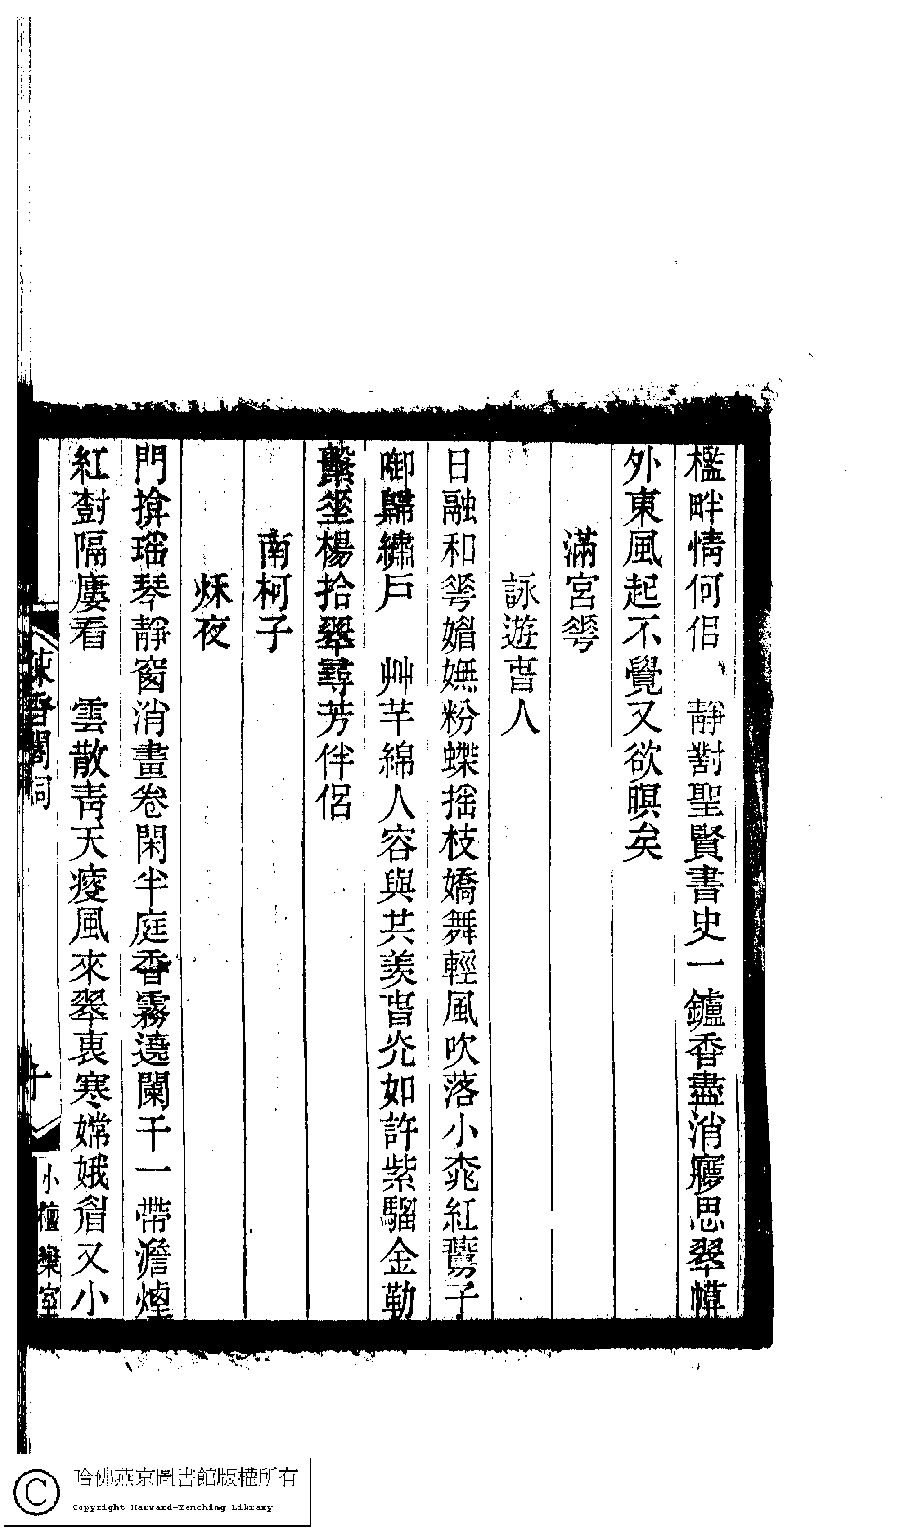 檻畔情何侶　靜對聖賢書史一鑪香盡消寥思翠幙
外東風起不覺又欲暝矣
滿宮䔢
詠遊旾人
日融和䔢媚嫵粉蝶搖枝嬌舞輕風吹落小桃紅鷰子
啣歸繡戶　艸芊綿人容與共羨旾光如許紫騮金勒
繫垂楊拾翠尋芳伴侶
南柯子
秌夜
門揜瑶琴靜窗消畫卷閑半庭香霧遶闌干一帶澹煙
紅樹隔廔看　雲散靑天瘦風來翠袖寒嫦娥眉又小
香閣詞
十
小檀欒室
哈佛燕京圖書館版權所有
Copyright Harvard-Yenching Library